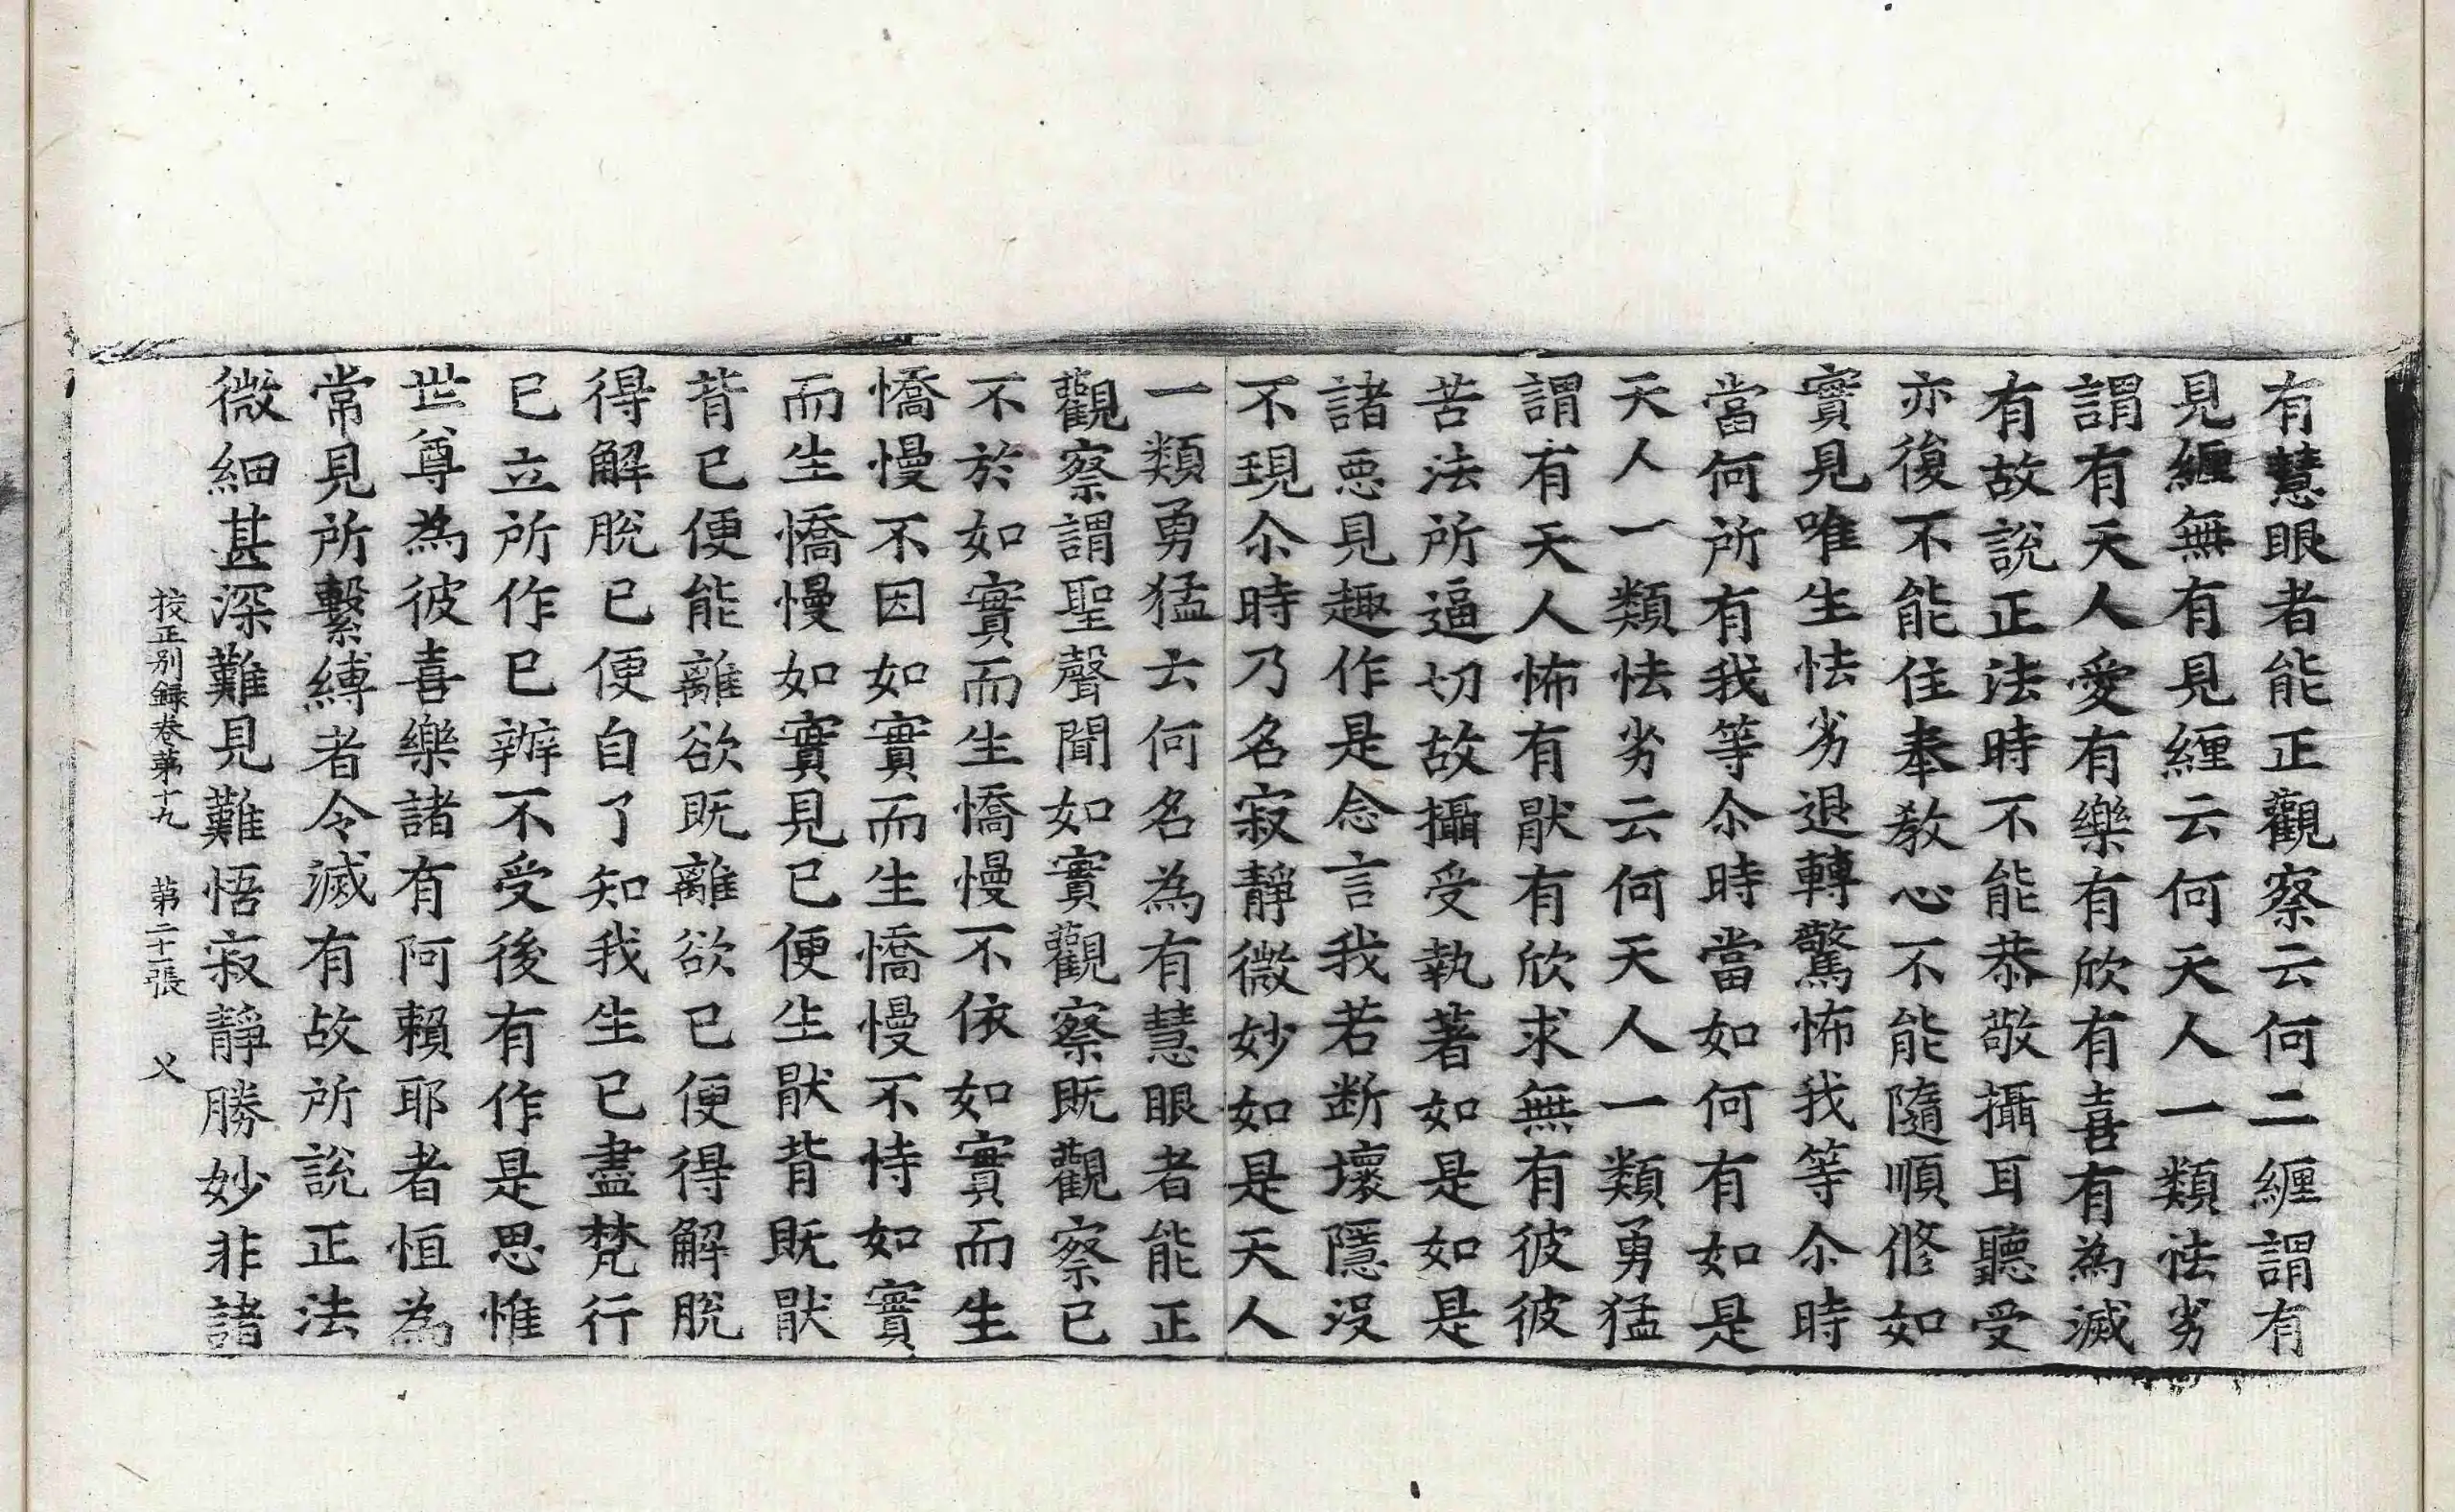 有慧眼者能正觀察云何二纏謂有
見纏無有見纏云何天人一類怯劣
謂有天人愛有樂有欣有喜有為滅
有故說正法時不能恭敬攝耳聽受
亦復不能住奉教心不能隨順修如
實見唯生怯劣退轉驚怖我等尒時
當何所有我等尒時當如何有如是
天人一類怯劣云何天人一類勇猛
謂有天人怖有猒有欣求無有彼彼
苦法所逼切故攝受執著如是如是
諸惡見趣作是念言我若斷壞隱沒
不現尒時乃名寂靜微妙如是天人
一類勇猛云何名為有慧眼者能正
觀察謂聖聲聞如實觀察既觀察已
不於如實而生憍慢不依如實而生
憍慢不因如實而生憍慢不恃如實
而生憍慢如實見已便生猒背既猒
背已便能離欲既離欲已便得解脫
得解脫已便自了知我生已盡梵行
已立所作已辦不受後有作是思惟
世尊為彼喜樂諸有阿賴耶者恒為
常見所繫縛者令滅有故所說正法
微細甚深難見難悟寂靜勝妙非諸
校正別錄卷苐十九　苐二十一張　乂